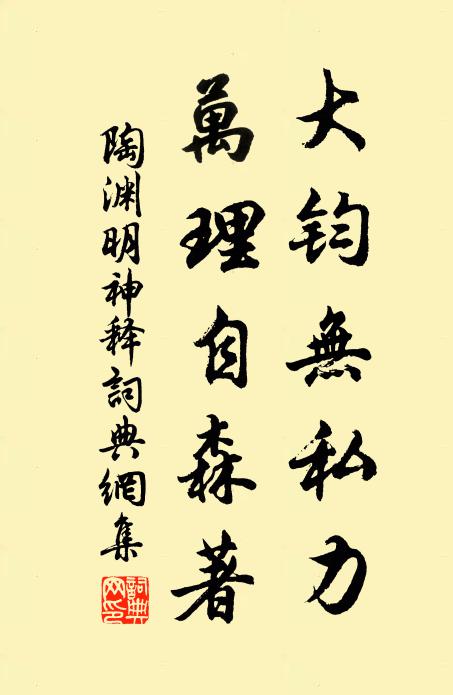 大钧無私力
萬理自森著
陶渊明神释詞典網集